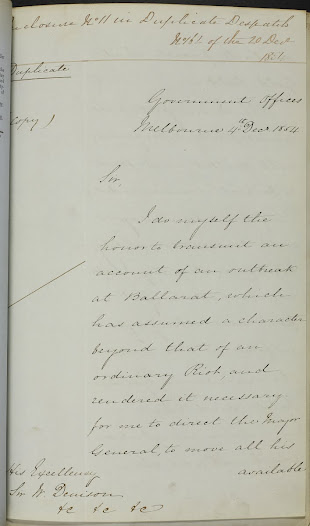 nclosure No 11 in Duplicate Despatch
of the 20 Decr
185
Duplicate
Government Offices
Copy)
Melbourne 4th Decr 1854
Sir,
I do myself the
honor to transmit an
account of an outbreak
at Ballarat, which
has assumed a character
beyond that of an
ordinary Riot, and
rendered it necessary
for me to direct the Major
General, to move all his
available
His Excellency
Sir W. Denison
&c &c &c